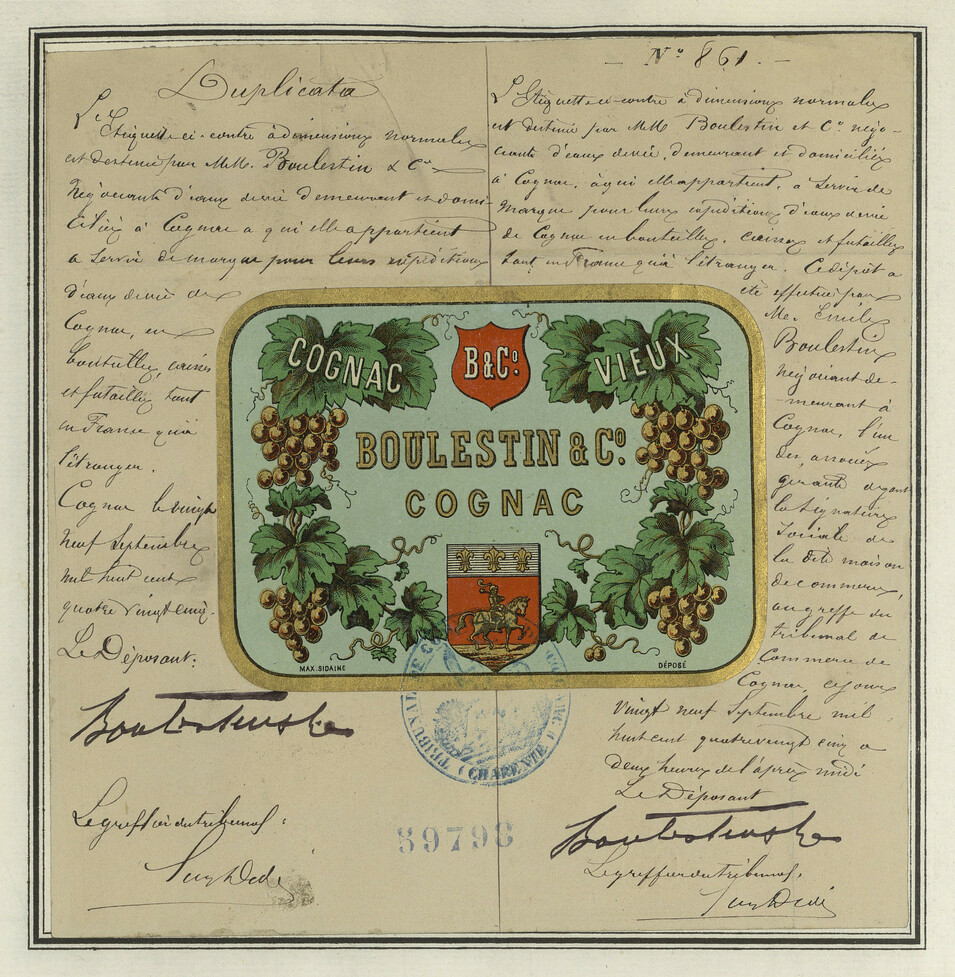 Duplicata
L'Etiquette ci-contre à dimensions normales
est destinée par M.M. Boulestin & Cie
négociants d'eaux de vie demeurant et domi-
ciliés à Cognac a qui elle appartient
a servir de marque pour leurs expéditions
d'eaux de vie de
Cognac, en
bouteilles, caisses
et futailles tant
en France qu'à
l'étranger.
Cognac le vingt
neuf Septembre
mil huit cent
quatre vingt cinq.
Le Déposant:
Boulestin & Co
Le greffier du tribunal:
N° 861.
L'Etiquette ci-contre à dimensions normales
est destinée par MM Boulestin et Cie négo-
ciants d'eaux de vie, demeurant et domiciliés
à Cognac, à qui elle appartient, a servir de
marque pour leurs expéditions d'eaux de vie
de Cognac en bouteilles, caisses et futailles
tant en France qu'à l'étranger. Ce dépôt a
été effectué par
Mr. Emile
Boulestin
négociant de-
-meurant à
Cognac, l'un
des associés
gérants ayant
la signature
sociale de
la dite maison
de commerce,
au greffe du
tribunal de
Commerce de
Cognac, ce jour
vingt neuf Septembre mil
huit cent quatre vingt cinq a
deux heures de l'après midi
Le Déposant
Boulestin & Co
Le greffier du tribunal,
COGNAC
B & Co.
VIEUX
BOULESTIN & Co.
COGNAC
MAX. SIDAINE
DÉPOSÉ
TRIBUNAL DE
(CHARENTE)
39793